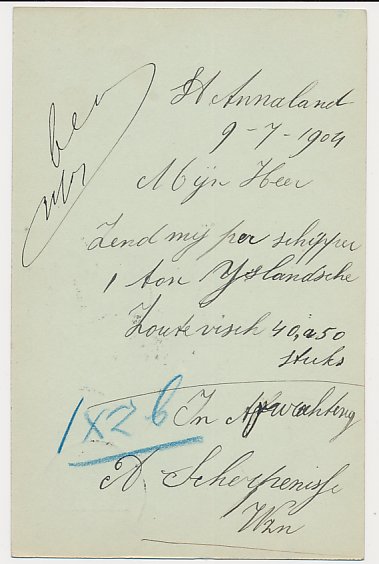 St Annaland
9-7-1904
Mijn Heer
Zend mij per schipper
1 ton Yslandsche
Zoutevisch 40 a 50
stuks
1x26
In Afwachting
A. Scherpenisse
Wzn